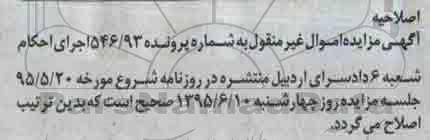 اصلاحیه
آگهـی مزایده امـوال غیر منقول به شـماره پرونـده ۵۴۶/۹۳ اجرای احکام
شـعبه ۶ دادسـرای اردبیل منتشـره در روزنامه شـروع مورخه ۹۵/۵/۲۰
جلسـه مزایده روز چهارشـنبه ۱۳۹۵/۶/۱۰ صحیح است که بدین ترتیب
اصلاح می گردد.